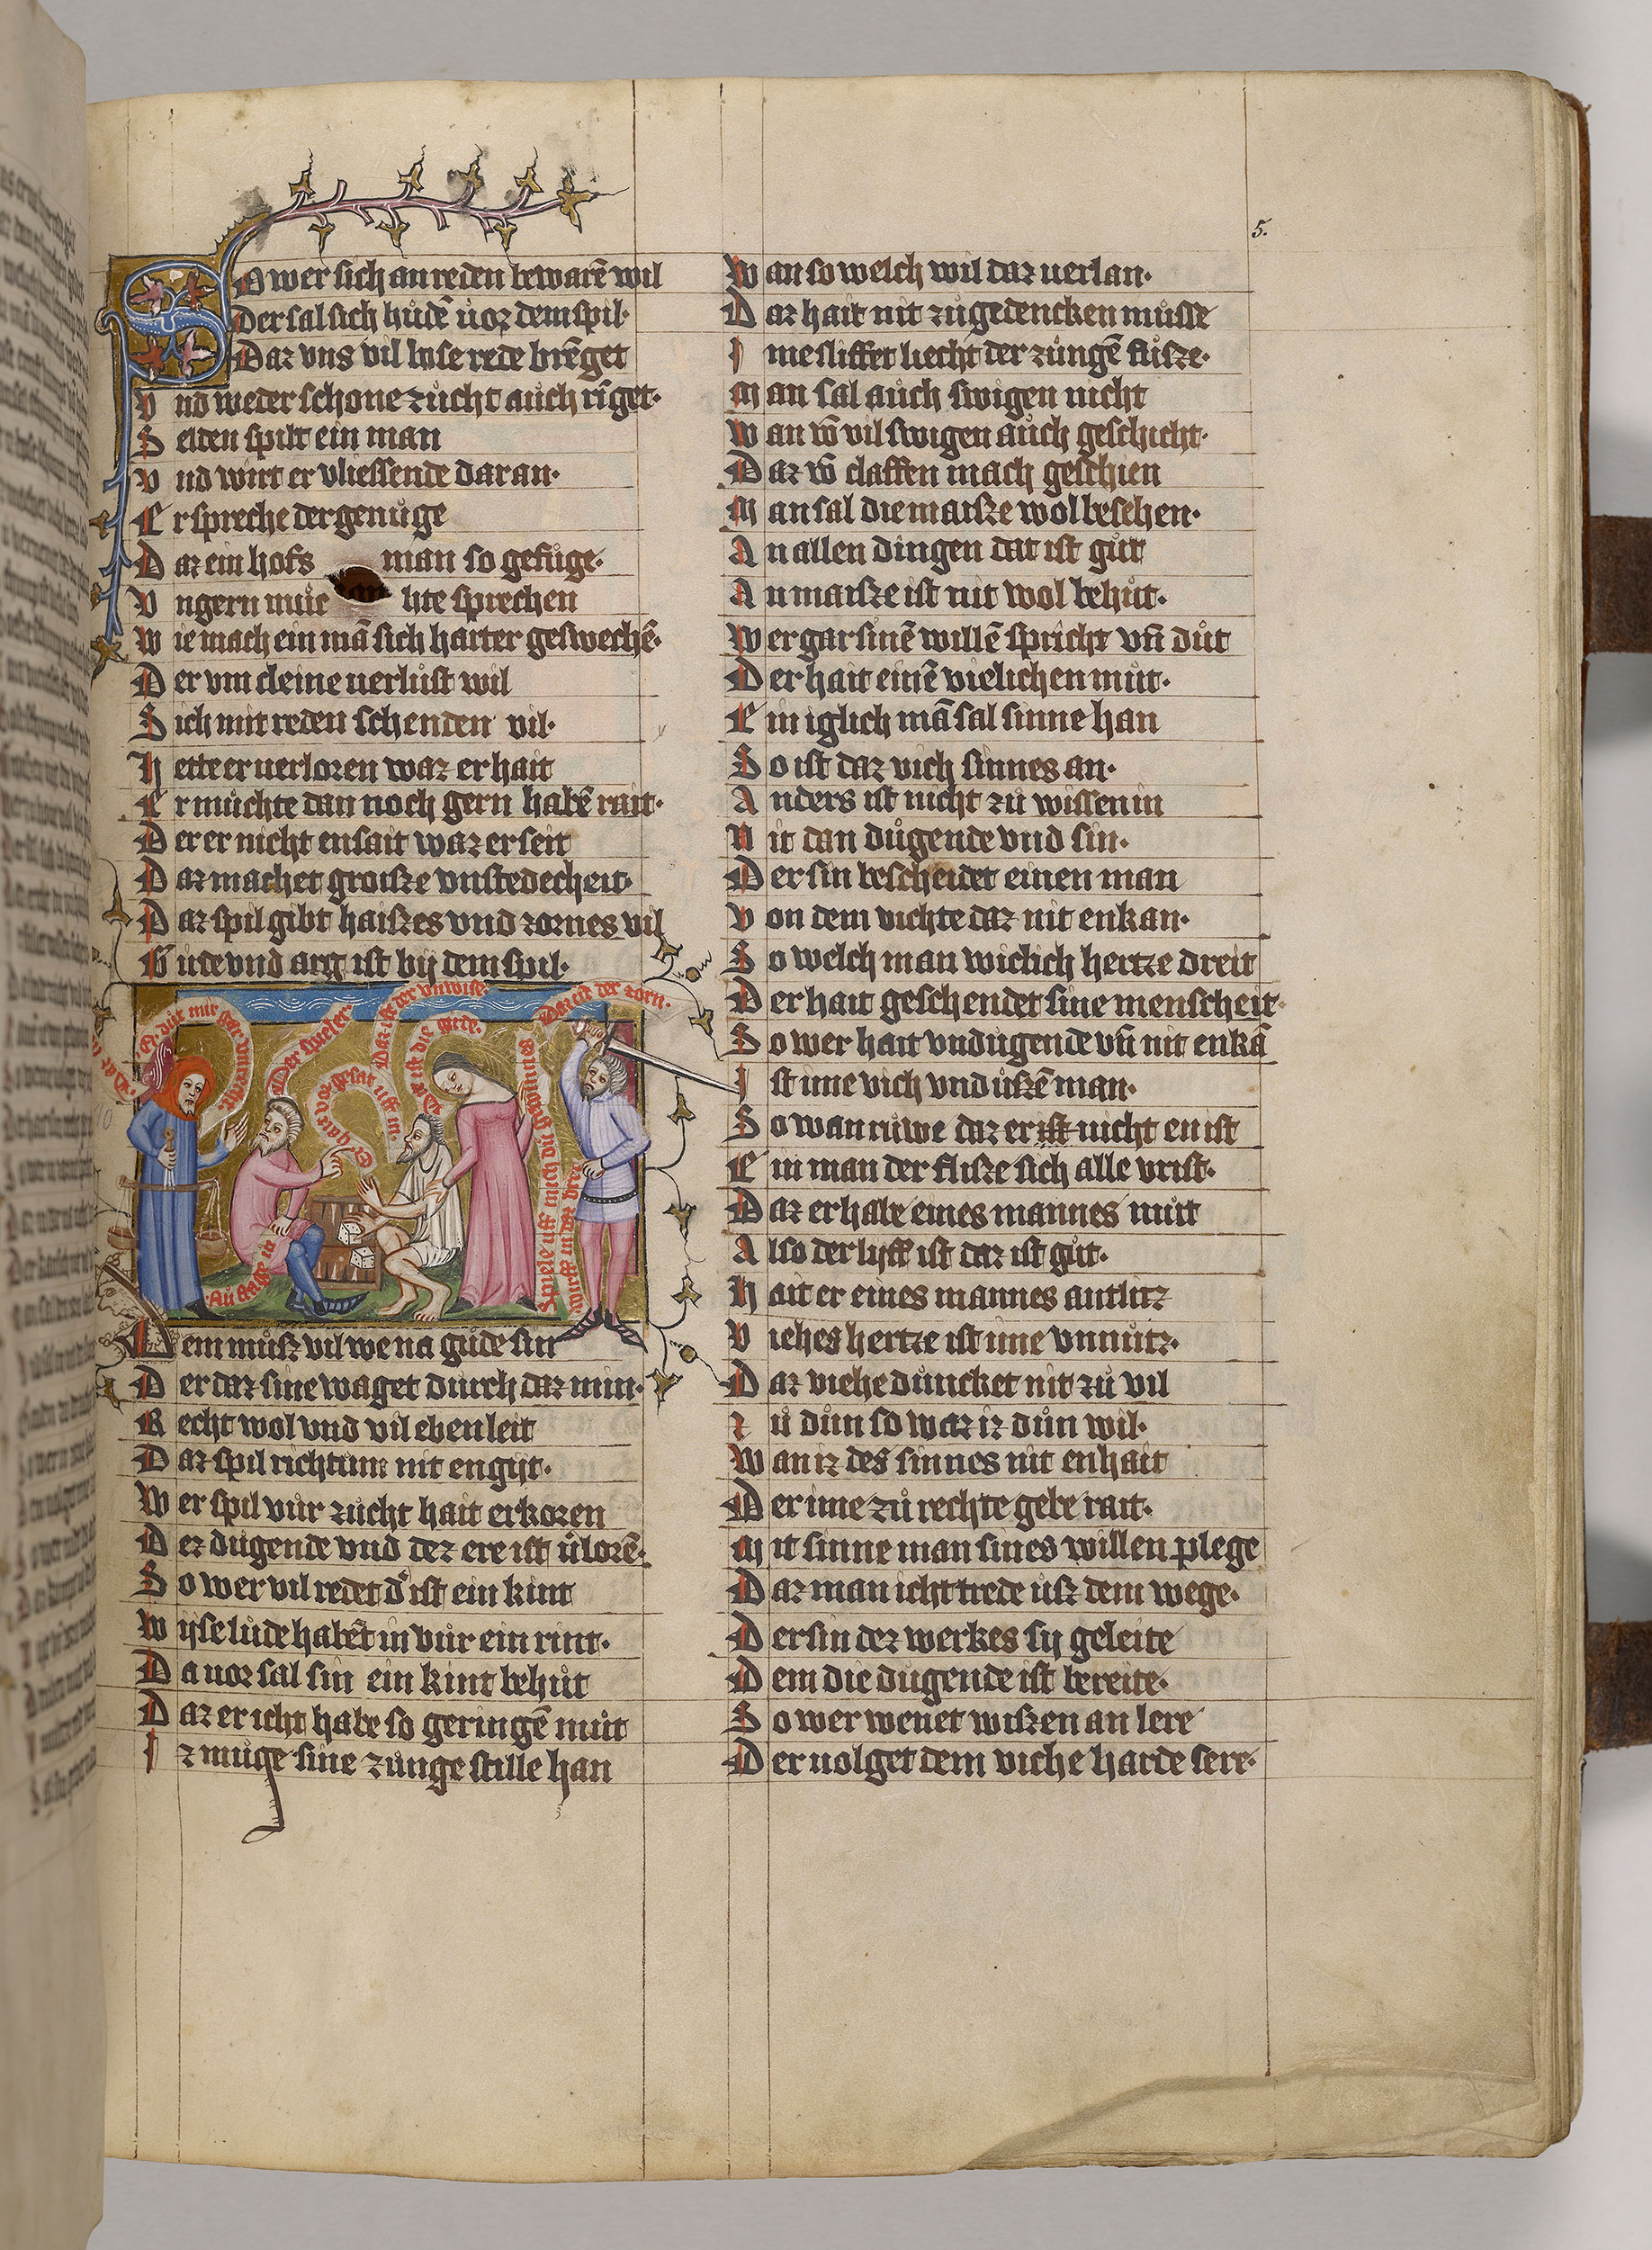 5.
So wer sich an reden bewarē wil
Der sal sich hůdē uor dem spil·
Daz vns vil bose rede brēget
Vnd weder schone zůcht auch rīget·
Selden spilt ein man
Vnd wirt er vliessende dar an·
Er spreche der genůge
Daz ein hofs man so gefůge·
Vngern můc hte sprechen
Wie mach ein mā sich harter geswechē·
Der vm cleine uerlůst wil
Sich mit reden schenden vil·
Hette er uerloren waz er hait
Er můchte dan noch gern habē rait·
Der er nicht ensait waz er seit
Daz machet groisze vnstedecheit·
Daz spil gibt haiszes vnd zornes vil
Gude vnd arg ist bij dem spil·
Er důt mir gar vnrecht
Der spieler
Er hait vor gesat uff in
Daz ist der vnwise
Daz ist die girde·
Daz ist der zorn·
Dem můsz vil we na gůde sin
Der daz sine waget durch daz min·
Recht wol vnd vil eben leit
Daz spil richtum nit engijt·
Wer spil vůr zucht hait erkoren
Der dugende vnd der ere ist ůlorē·
So wer vil redet d' ist ein kint
Wijse lůde habēt in vůr ein rint·
Da uor sal sin ein kint behůt
Daz er icht habe so geringē můt
Iz můge sine zůnge stille han
Wan so welch wil daz uerlan·
Daz hait nit zůgedencken můsse
Ime sliffet liecht der zůngē fůsze·
Man sal aůch swigen nicht
Wan vō vil swigen aůch geschicht·
Daz vō claffen mach geschien
Man sal die maisze wol besehen·
An allen dingen dat ist gůt
An maisze ist nit wol behůt·
Wer gar sinē willē spricht vn̄ důt
Der hait einē vielichen můt·
Ein iglich mā sal sinne han
So ist daz vich sinnes an·
Anders ist nicht zů wissen in
Nit dan důgende vnd sin·
Der sin bescheidet einen man
Von dem vichte daz nit enkan·
So welch man wiclich hertze dreit
Der hait geschendet sine menscheit·
So wer hait vndugende vn̄ nit enkā
Ist ime vich vnd ůszē man·
So wan růwe daz er ist nicht en ist
Ein man der flisze sich alle vrist·
Daz er habe eines mannes můt
Also der lijff ist daz ist gůt·
Hait er eines mannes antlitz
Viehes hertze ist ime vnnůtz·
Daz viehe důncket nit zů vil
Zů důn so waz iz důn wil·
Wan iz des sinnes nit enhait
Der ime zů rechte gebe rait·
Mit sinne man sines willen plege
Daz man icht trede ůsz dem wege·
Der sin dez werkes sij geleite
Dem die dugende ist bereite·
So wer wenet wiszen an lere
Der uolget dem viche harde sere·